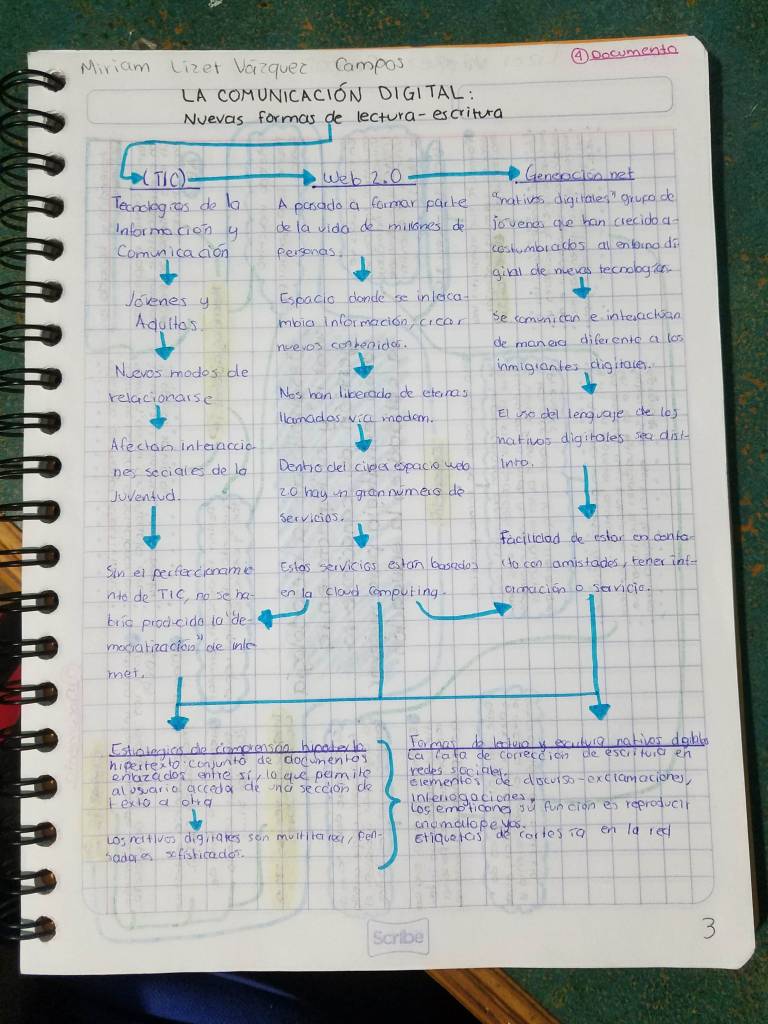 ④ Documento
Miriam Lizet Vázquez Campos
LA COMUNICACIÓN DIGITAL:
Nuevas formas de lectura-escritura
(TIC)
Tecnologías de la
Información y
Comunicación
Jóvenes y
Adultos.
Nuevos modos de
relacionarse
Afectan interaccio
nes sociales de la
juventud.
Sin el perfeccioname
nto de TIC, no se ha-
bría producido la "de-
mocratización" de inte
rnet.
Web 2.0
A pasado a formar parte
de la vida de millones de
personas.
Espacio donde se interca-
mbia información, crear
nuevos contenidos.
Nos han liberado de eternas
llamadas vía modem.
Dentro del ciber espacio web
2.0 hay un gran número de
servicios.
Estos servicios están basados
en la Cloud computing.
Generación net
"nativos digitales" grupo de
jóvenes que han crecido a-
costumbrados al entorno di-
gital de nuevas tecnologías.
Se comunican e interactúan
de manera diferente a los
inmigrantes digitales.
El uso del lenguaje de los
nativos digitales sea dist-
into.
Facilidad de estar en conta-
cto con amistades, tener inf-
ormación o servicio.
Estrategias de comprensión hipertexto
hipertexto: conjunto de documentos
enlazados entre sí, lo que permite
al usuario acceda de una sección de
texto a otra
Los nativos digitales son multitarea, pen-
sadores sofisticados.
Formas de lectura y escritura nativos digitales
La falta de corrección de escritura en
redes sociales.
elementos de discurso-exclamaciones,
interrogaciones.
Los emoticones su función es reproducir
onomatopeyas.
etiquetas de cortesía en la red
Scribe
3